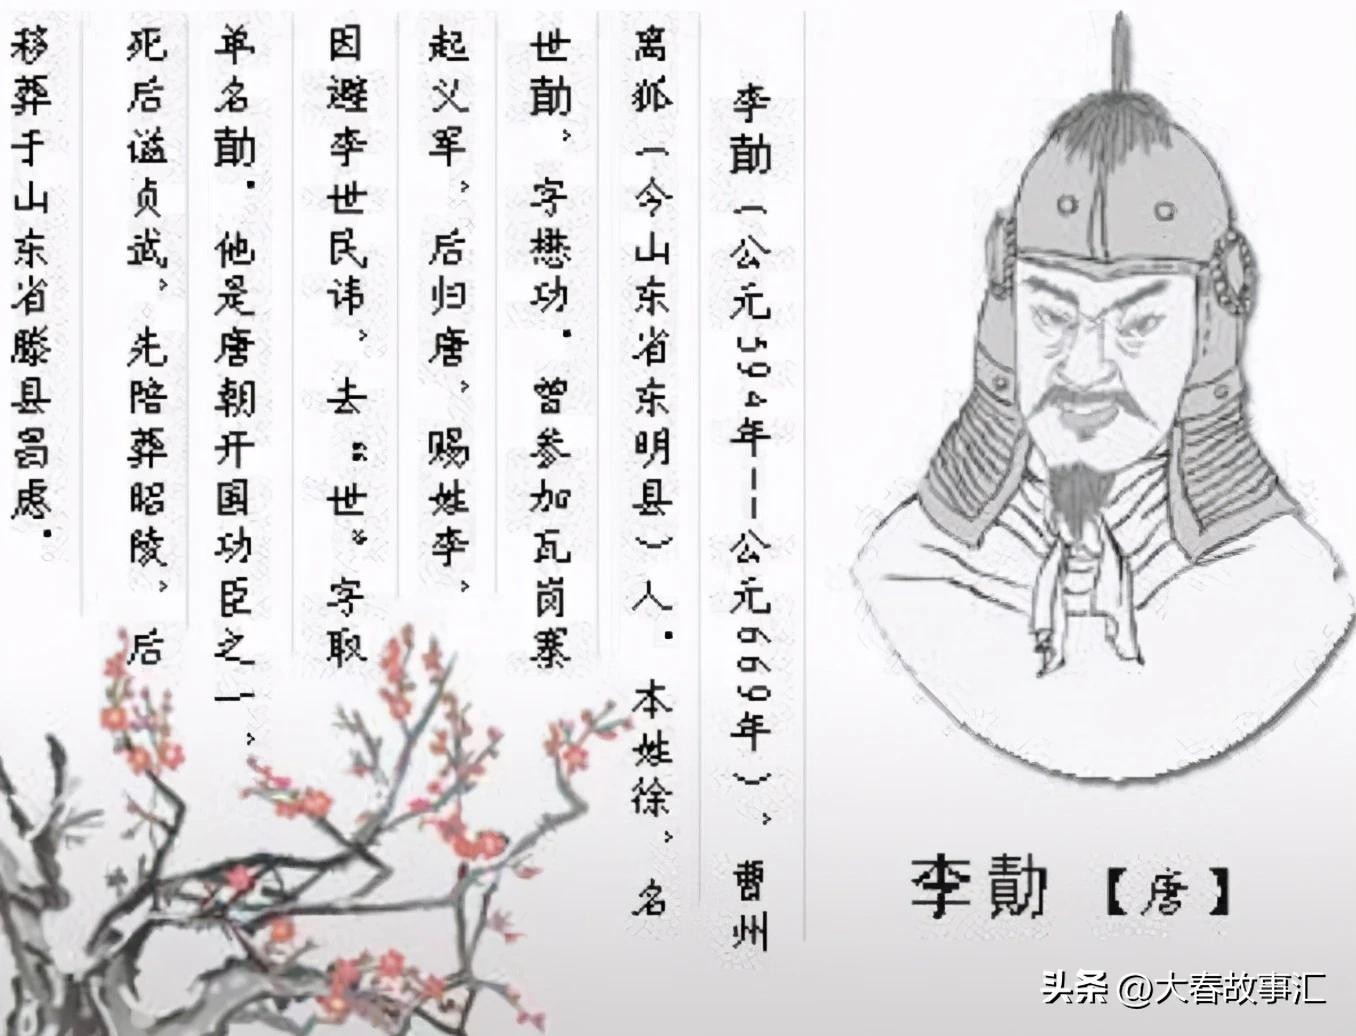 李勣（公元594年——公元669年），曹州
离狐（今山东省东明县）人．本姓徐，名
世勣，字懋功．曾参加瓦岗寨
起义军，后归唐，赐姓李，
因避李世民讳，去“世”字取
单名勣．他是唐朝开国功臣之一，
死后谥贞武，先陪葬昭陵，后
移葬于山东省滕县昌虑．
李勣【唐】
头条 @大春故事汇